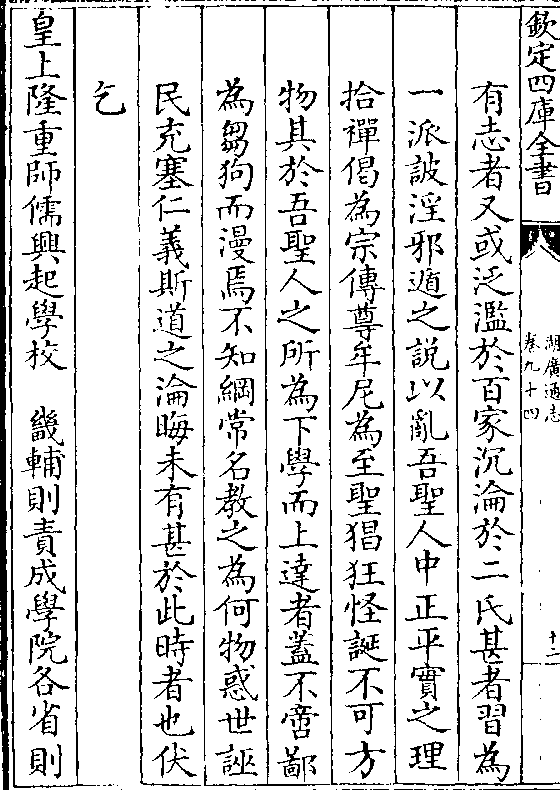 欽定四庫全書
湖廣通志
卷九十四
十二
有志者又或泛濫於百家沉淪於二氏甚者習為
一派詖淫邪遁之説以亂吾聖人中正平實之理
拾禪偈為宗傳尊牟尼為至聖猖狂怪誕不可方
物其於吾聖人之所為下學而上達者蓋不啻鄙
為芻狗而漫焉不知綱常名教之為何物惑世誣
民充塞仁義斯道之淪晦未有甚於此時者也伏
乞
皇上隆重師儒興起學校 畿輔則責成學院各省則